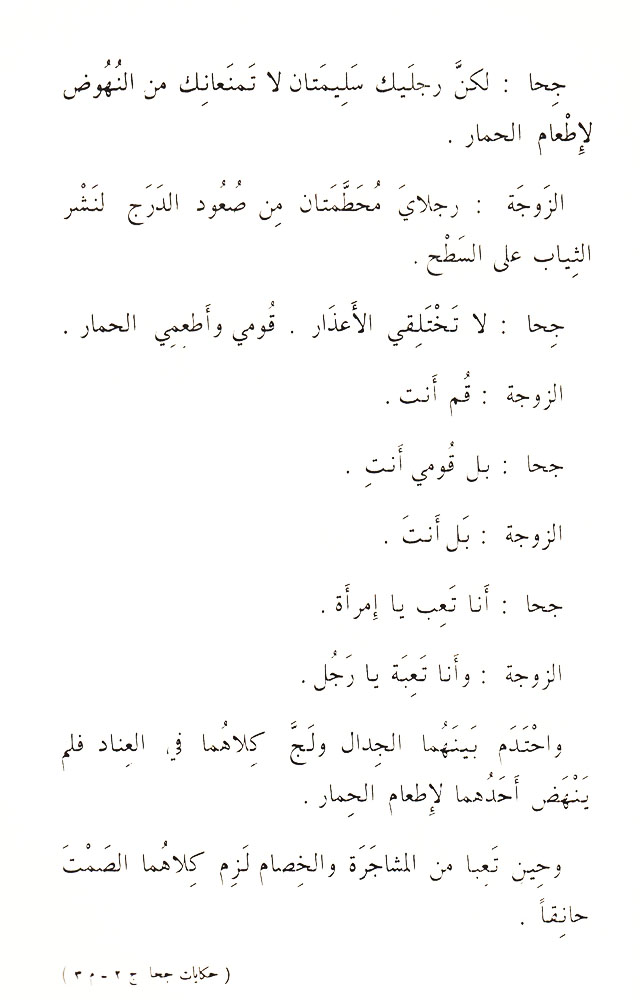 جِحا : لكنَّ رجلَيك سَلِيمَتان لا تَمنَعانِك من النُهُوض
لإِطْعام الحمار .
الزَوجَة : رجلايَ مُحَطَّمَتان مِن صُعُود الدَرَج لنَشْر
الثِياب على السَطْح .
جِحا : لا تَخْتَلِقي الأَعذَار . قُومي وأَطعِمِي الحمار .
الزوجة : قُم أَنت .
جحا : بل قُومي أَنتِ .
الزوجة : بَل أَنتَ .
جحا : أَنا تَعِب يا إمرأَة .
الزوجة : وأَنا تَعِبَة يا رَجُل .
واحْتَدَم بَينَهُما الجِدال ولَجَّ كِلاهُما في العِناد فلم
يَنْهَض أَحَدُهما لإِطعام الحِمار .
وحِين تَعِبا من المشاجَرَة والخِصام لَزِم كِلاهُما الصَمْتَ
حانِقاً .
( حكايات جحا ج ٢ - م ٣ )